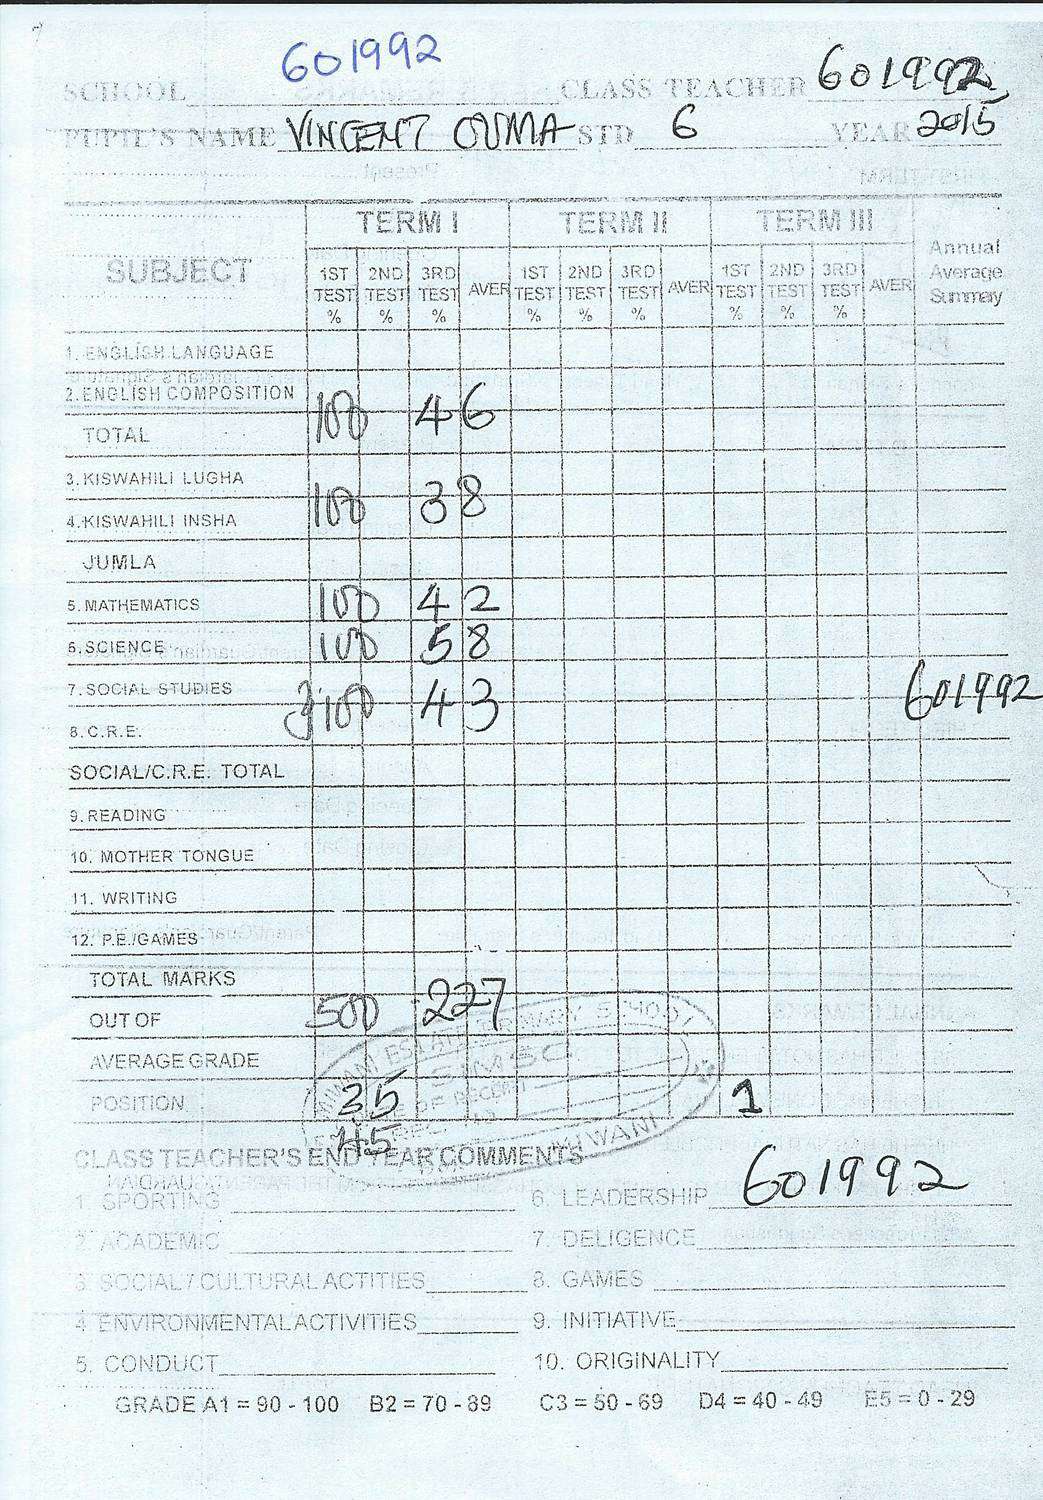 601992
SCHOOL CLASS TEACHER 601992
PUPIL'S NAME VINCENT OUMA STD 6 YEAR 2015
SUBJECT TERM I TERM II TERM III Annual Average Summary
1ST TEST % 2ND TEST % 3RD TEST % AVER 1ST TEST % 2ND TEST % 3RD TEST % AVER 1ST TEST % 2ND TEST % 3RD TEST % AVER
1. ENGLISH LANGUAGE
2. ENGLISH COMPOSITION 100 46
TOTAL
3. KISWAHILI LUGHA
100 38
4. KISWAHILI INSHA
JUMLA
5. MATHEMATICS 100 42
6. SCIENCE 100 58
7. SOCIAL STUDIES 100 43 601992
8. C.R.E.
SOCIAL/C.R.E. TOTAL
9. READING
10. MOTHER TONGUE
11. WRITING
12. P.E./GAMES
TOTAL MARKS
OUT OF 500 227
AVERAGE GRADE
POSITION 35 1
45
MIWANI ESTATE PRIMARY SCHOOL
MIWANI
CLASS TEACHER'S END YEAR COMMENTS
1. SPORTING 6. LEADERSHIP 601992
2. ACADEMIC 7. DELIGENCE
3 SOCIAL / CULTURAL ACTITIES 8. GAMES
4 ENVIRONMENTAL ACTIVITIES 9. INITIATIVE
5. CONDUCT 10. ORIGINALITY
GRADE A1 = 90 - 100 B2 = 70 - 89 C3 = 50 - 69 D4 = 40 - 49 E5 = 0 - 29